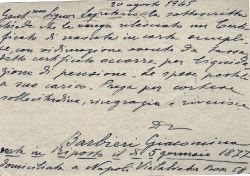 20 agosto 1945
Gent.mo Signor Segretario, la sottoscritta
chiede le sia rilasciato un Certi-
ficato di nascita in carta semplice,
con vidimazione esente da tassa
detto certificato occorre per liquida-
zione di pensione, le spese postali
a suo carico. Prega per cortese
sollecitudine, ringrazia e riverisce
Barbieri Giacomina
nata in Riposto il dì 5 gennaio 1877
domiciliata a Napoli Via